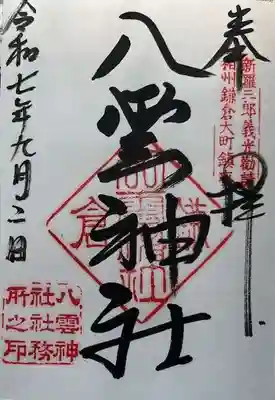 奉拝
新羅三郎義光勧請
相州鎌倉大町鎮座
八雲神社
鎌倉
八雲神
社社務
所之印
令和七年九月二日